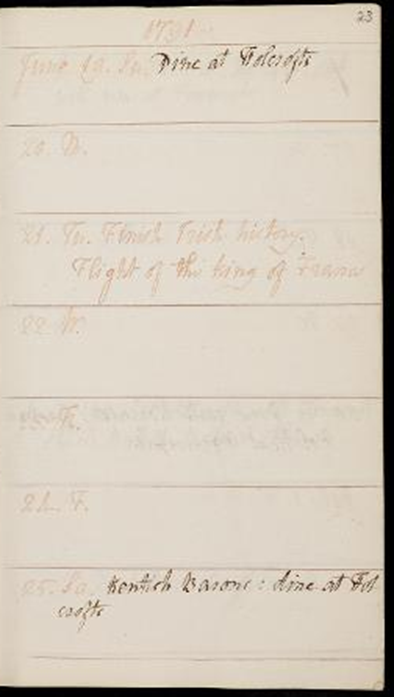 23
1791
June 19. Su. Dine at Holcrofts
20. M.
21. Tu. Finish Irish history.
Flight of the king of France
22. W.
23. Th.
24. F.
25. Sa. Kentish Barons: dine at Hol
crofts